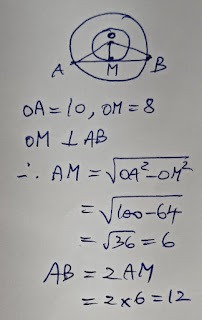 O
A M B
OA = 10, OM = 8
OM ⊥ AB
∴ AM = √OA² – OM²
= √100 – 64
= √36 = 6
AB = 2AM
= 2 x 6 = 12